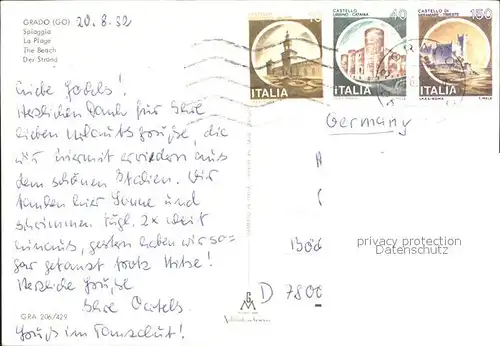 GRADO (GO) 20.8.82
Spiaggia
La Plage
The Beach
Der Strand
Liebe Jodels!
Herzlichen Dank für Ihre
lieben Urlaubsgrüße, die
wir hiermit erwidern aus
dem schönen Italien. Wir
tanken hier Sonne und
schwimmen tägl. 2x weit
hinaus, gestern haben wir so-
gar getanzt trotz Hitze!
Herzliche Grüße
Ihre
Gruß im
GRA 206/429
10
ITALIA
CASTELLO
URSINO - CATANIA
40
ITALIA
CASTELLO DI
MIRAMARE - TRIESTE
150
ITALIA
Germany
Böd
privacy protection
Datenschutz
D 7800